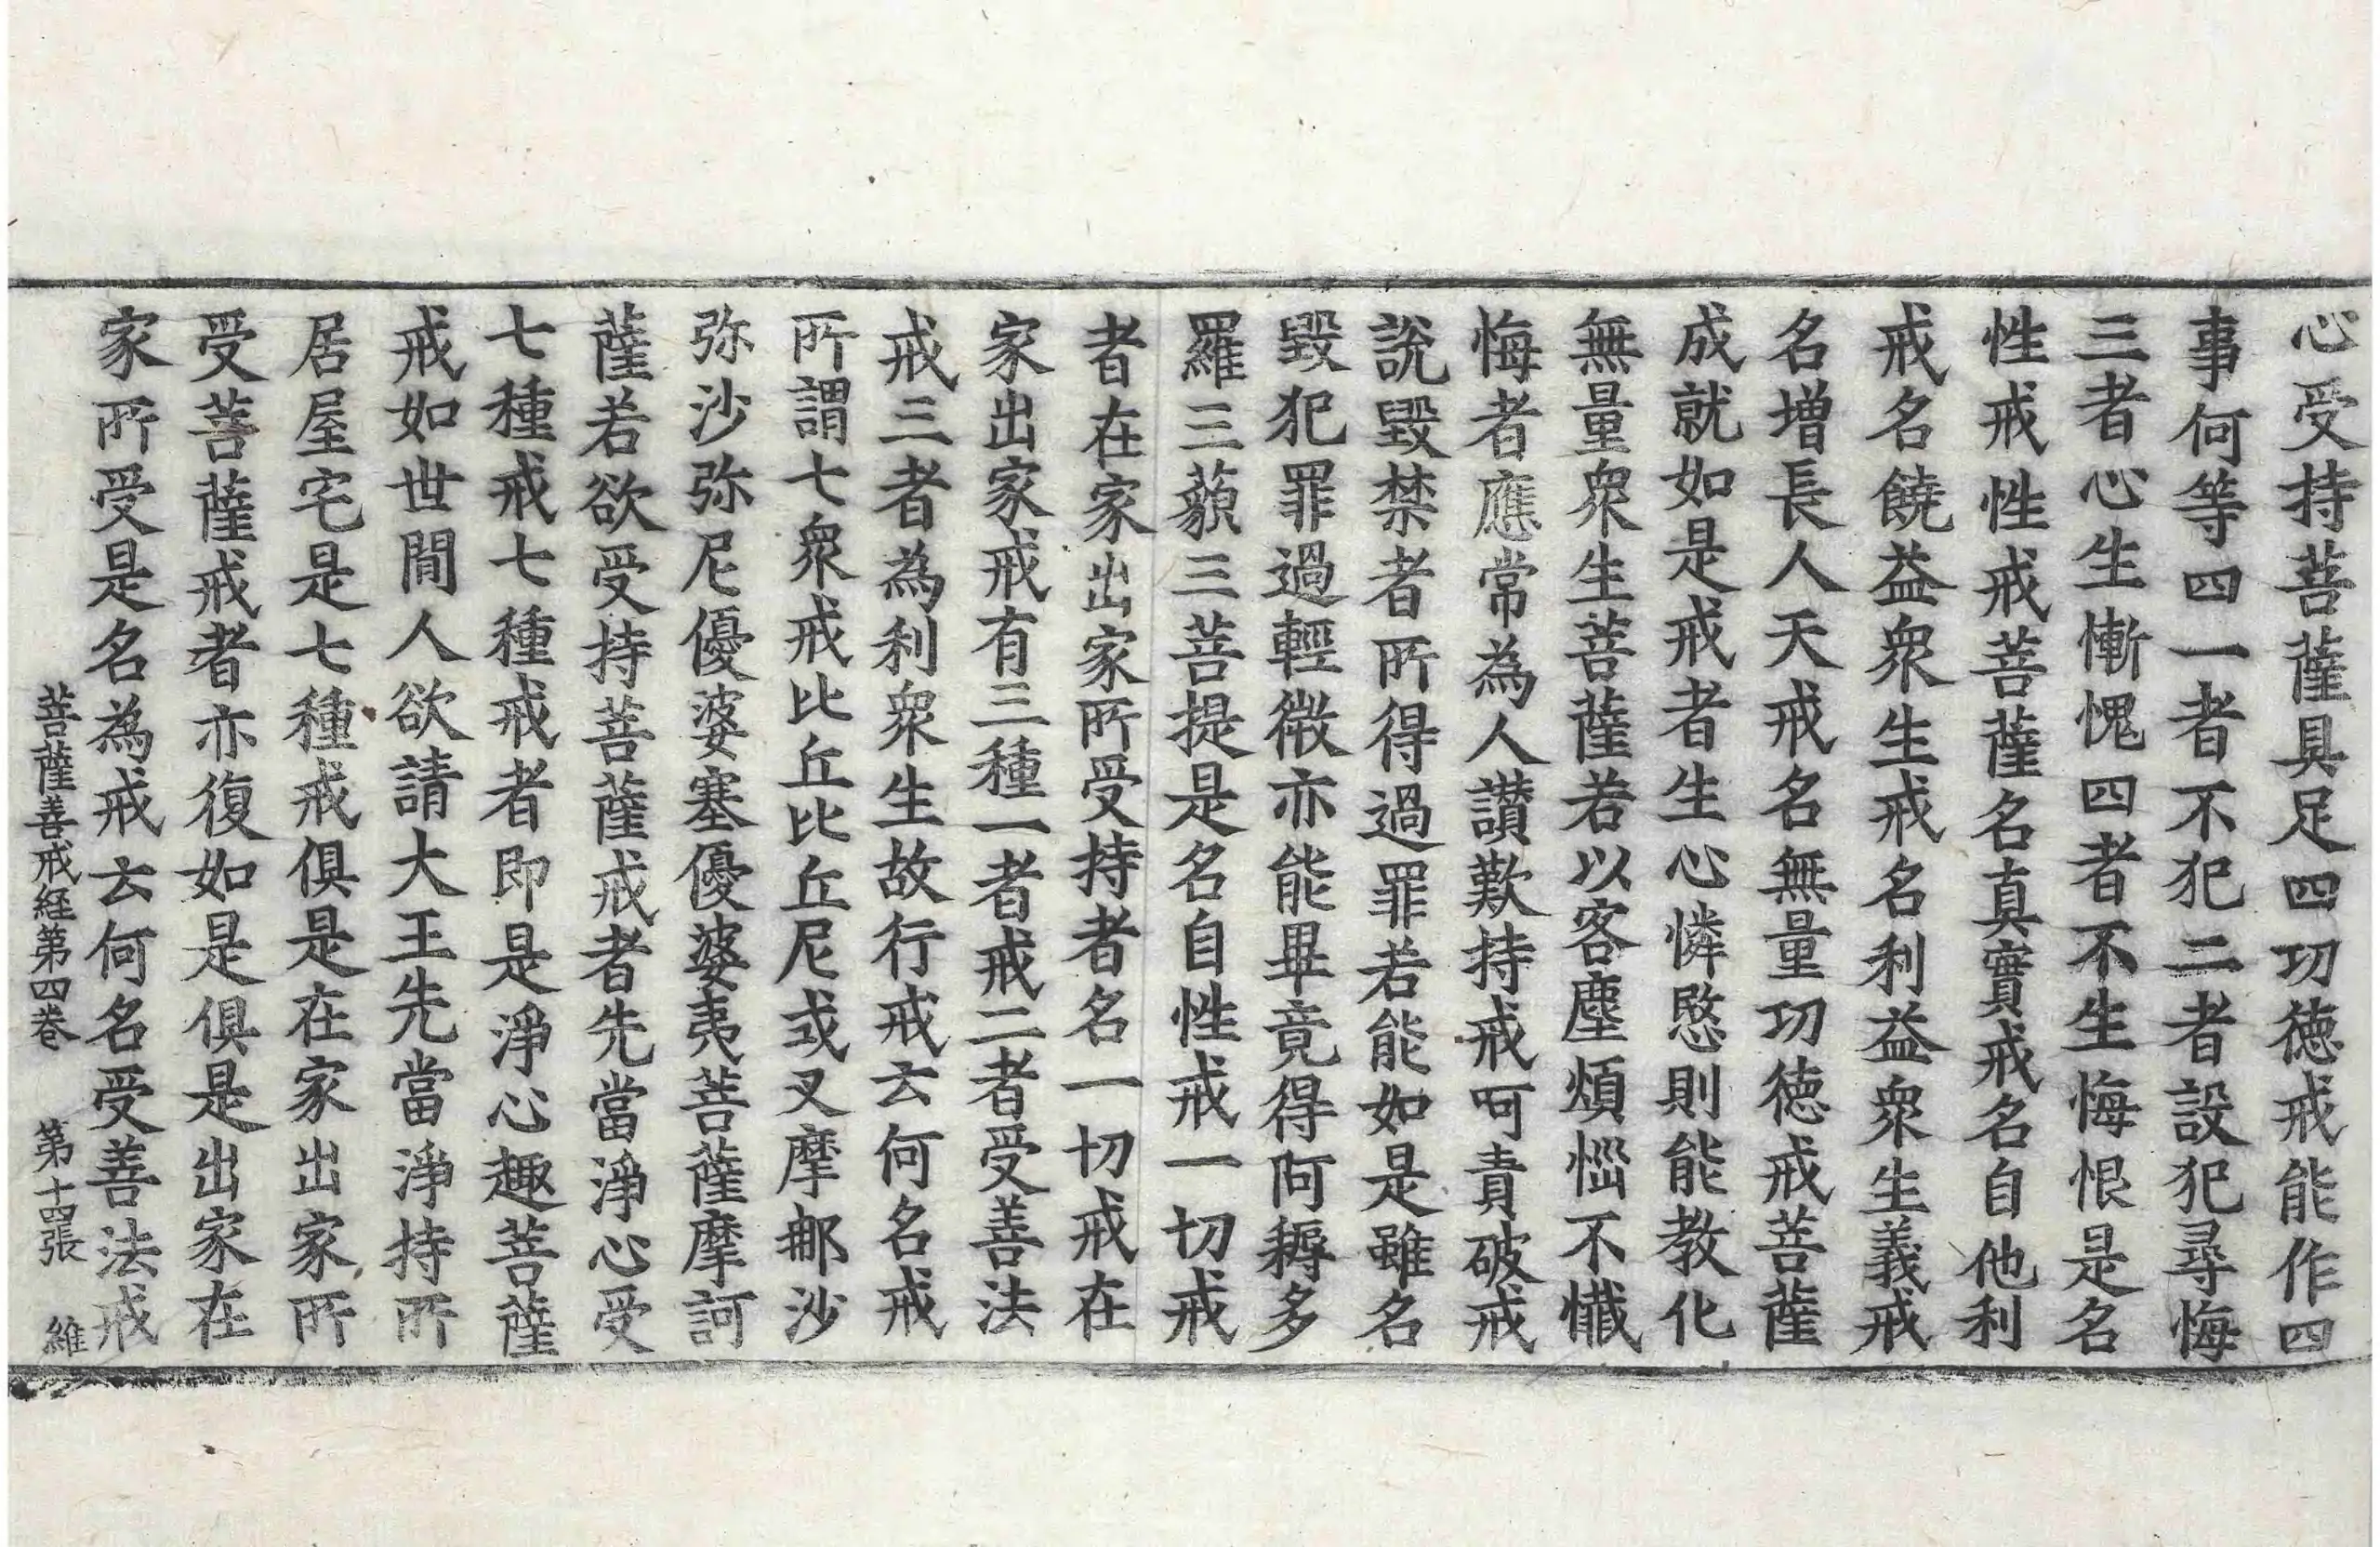 心受持菩薩具足四功德戒能作四
事何等四一者不犯二者設犯尋悔
三者心生慚愧四者不生悔恨是名
性戒性戒菩薩名真實戒名自他利
戒名饒益衆生戒名利益衆生義戒
名增長人天戒名無量功徳戒菩薩
成就如是戒者生心憐愍則能教化
無量衆生菩薩若以客塵煩惱不懺
悔者應常為人讃歎持戒呵責破戒
說毀禁者所得過罪若能如是雖名
毀犯罪過輕微亦能畢竟得阿耨多
羅三藐三菩提是名自性戒一切戒
者在家出家所受持者名一切戒在
家出家戒有三種一者戒二者受善法
戒三者為利衆生故行戒云何名戒
所謂七衆戒比丘比丘尼式叉摩那沙
弥沙弥尼優婆塞優婆夷菩薩摩訶
薩若欲受持菩薩戒者先當淨心受
七種戒七種戒者即是淨心趣菩薩
戒如世間人欲請大王先當淨持所
居屋宅是七種戒俱是在家出家所
受菩薩戒者亦復如是俱是出家在
家所受是名為戒云何名受善法戒
菩薩善戒経第四巻 第十四張 維